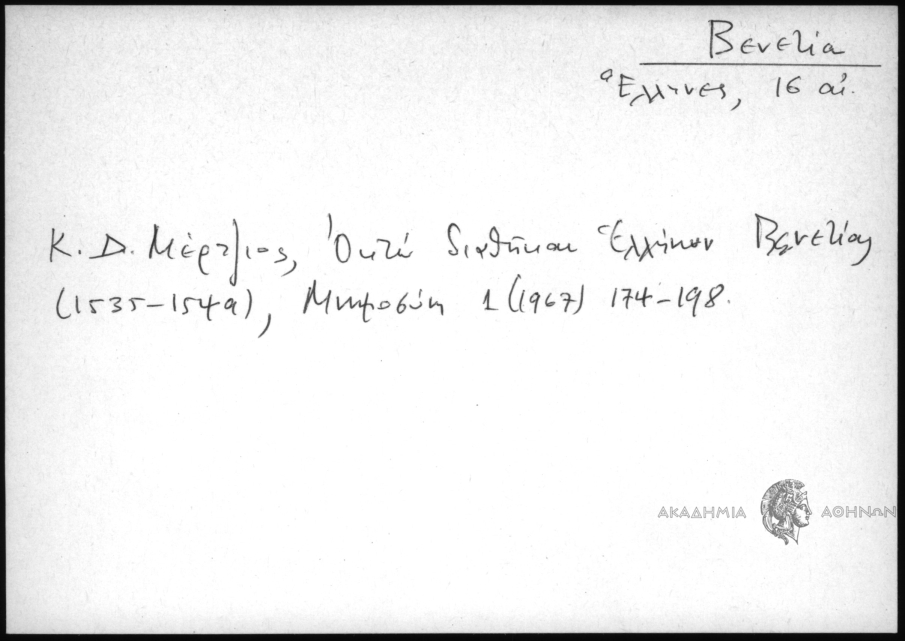 Βενετία
Ἕλληνες, 16 αἰ.
Κ. Δ. Μέρτζιος, Ὀκτώ διαθῆκαι Ἑλλήνων Βενετίας
(1535-1549), Μνημοσύνη 1 (1967) 174-198.
ΑΚΑΔΗΜΙΑ ΑΘΗΝΩΝ